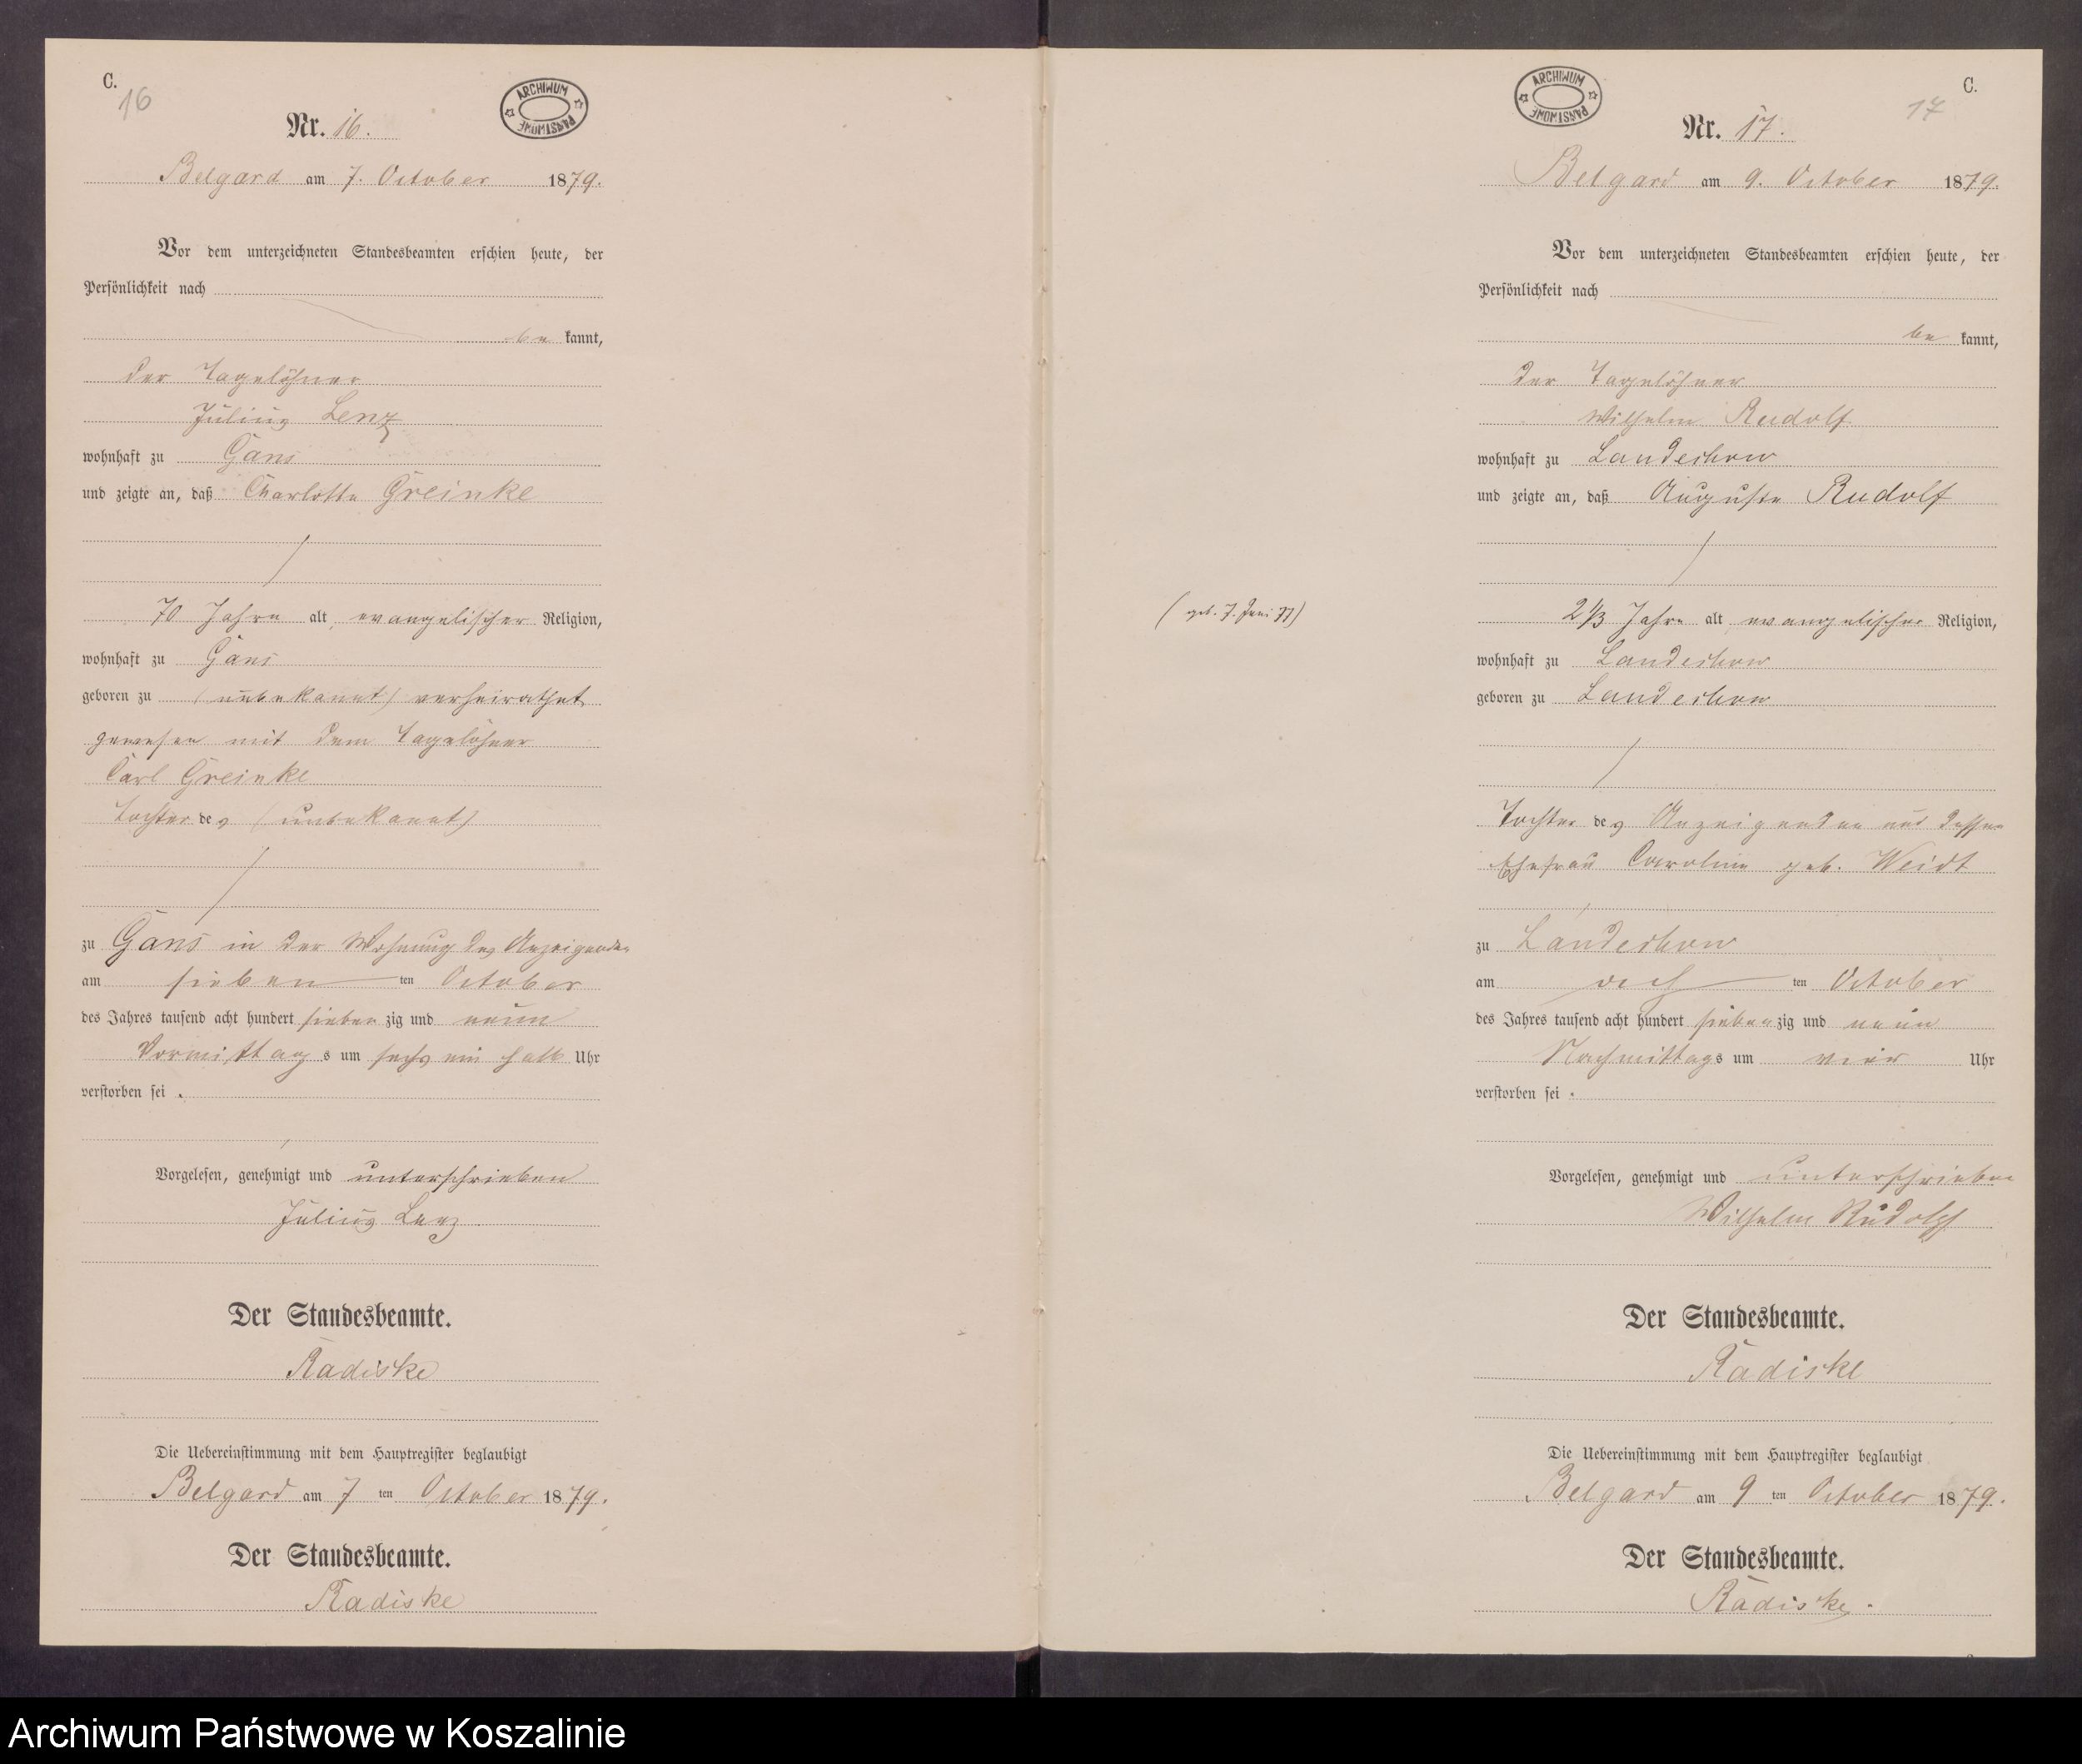 C.
16
ARCHIWUM PAŃSTWOWE
Nr. 16.
Belgard am 7. October 1879.
Vor dem unterzeichneten Standesbeamten erschien heute, der
Persönlichkeit nach
be kannt,
der Tagelöhner
Julius Lenz
wohnhaft zu Gans
und zeigte an, daß Charlotte Greinke
70 Jahre alt, evangelischer Religion,
wohnhaft zu Gans
geboren zu (unbekannt) verheirathet
gewesen mit dem Tagelöhner
Carl Greinke
Tochter des (unbekannt)
zu Gans in der Wohnung des Anzeigenden
am sieben ten October
des Jahres tausend acht hundert siebenzig und neun
Vormittags um sechs ein halb Uhr
verstorben sei.
Vorgelesen, genehmigt und unterschrieben
Julius Lenz
Der Standesbeamte.
Radiske
Die Uebereinstimmung mit dem Hauptregister beglaubigt
Belgard am 7 ten October 1879.
Der Standesbeamte.
Radiske
C.
17
ARCHIWUM PAŃSTWOWE
Nr. 17.
Belgard am 9. October 1879.
Vor dem unterzeichneten Standesbeamten erschien heute, der
Persönlichkeit nach
be kannt,
der Tagelöhner
Wilhelm Rudolf
wohnhaft zu Landechow
und zeigte an, daß Auguste Rudolf
(geb. 7. Juni 77)
2 1/3 Jahre alt evangelischer Religion,
wohnhaft zu Landechow
geboren zu Landechow
Tochter des Anzeigenden und dessen
Ehefrau Caroline geb. Weidt
zu Landechow
am ach ten October
des Jahres tausend acht hundert siebenzig und neun
Nachmittags um vier Uhr
verstorben sei.
Vorgelesen, genehmigt und unterschrieben
Wilhelm Rudolf
Der Standesbeamte.
Radiske
Die Uebereinstimmung mit dem Hauptregister beglaubigt
Belgard am 9 ten October 1879.
Der Standesbeamte.
Radiske.
Archiwum Państwowe w Koszalinie